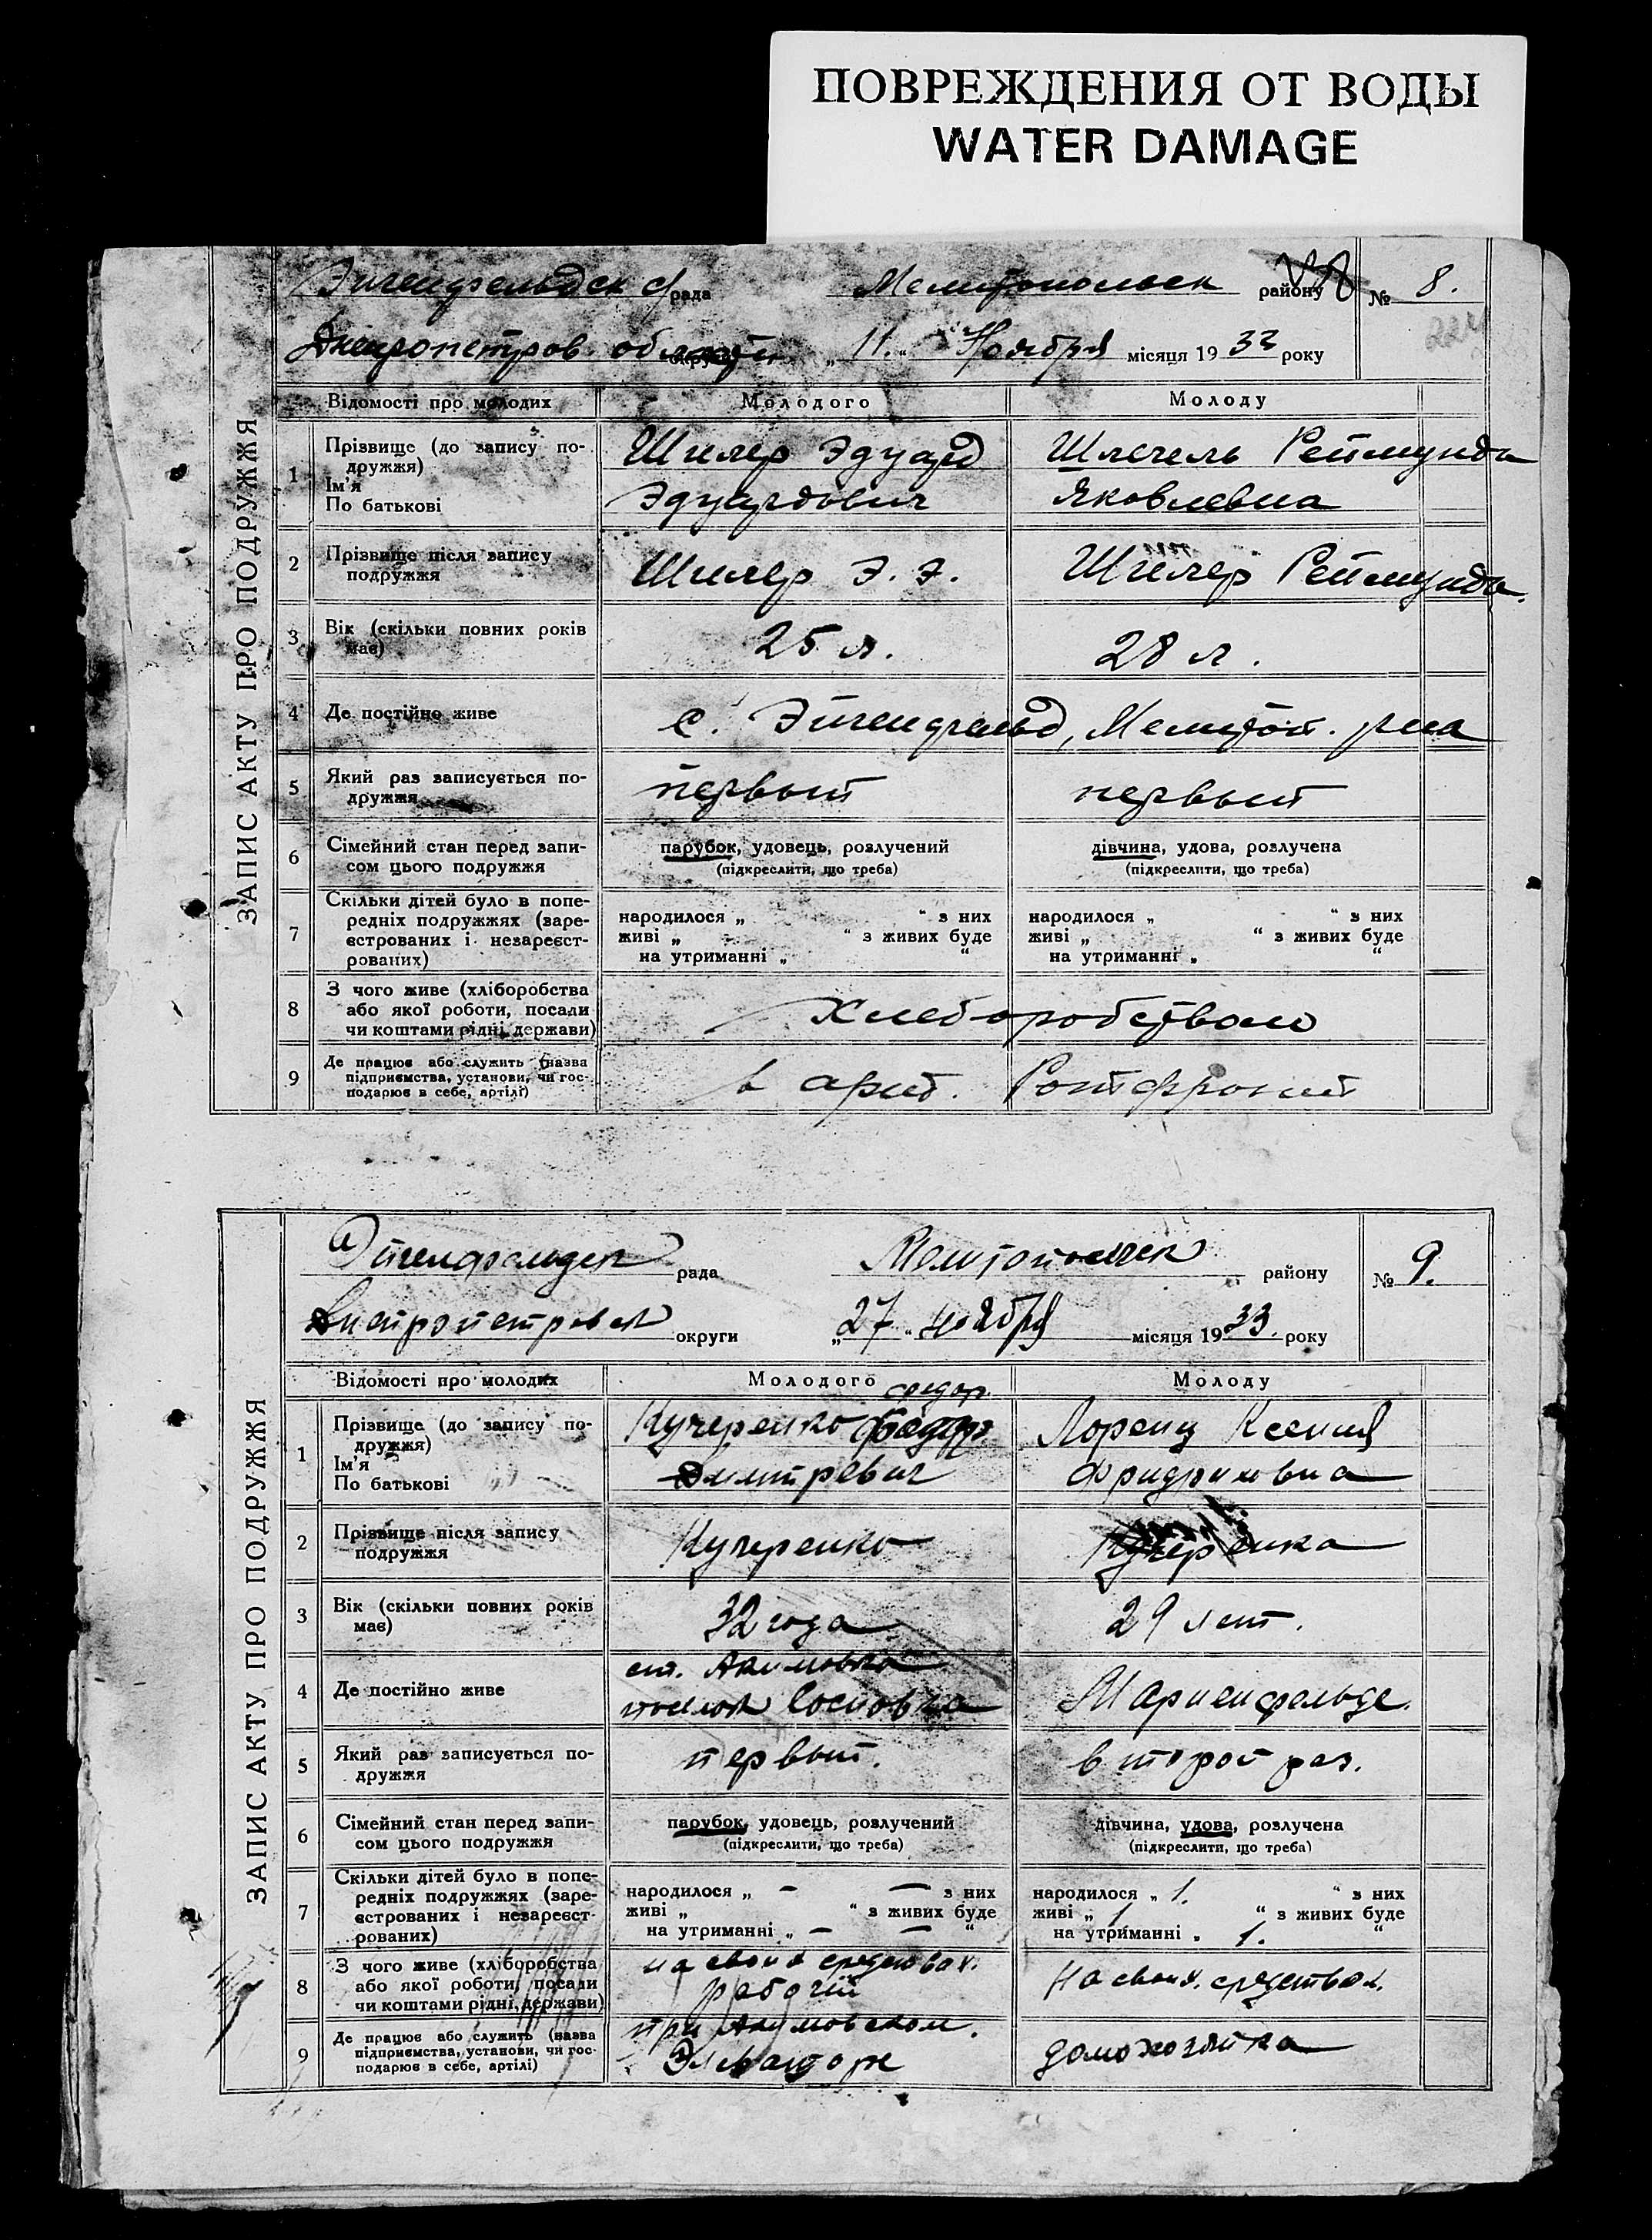 ПОВРЕЖДЕНИЯ ОТ ВОДЫ
WATER DAMAGE
рада Мелитопольск району № 8.
Днепропетров. области „11.“ Ноября місяця 19 33 року
ЗАПИС АКТУ ПРО ПОДРУЖЖЯ
Відомості про молодих Молодого Молоду
1 Прізвище (до запису по-
дружжя)
Ім'я
По батькові
Шилер Эдуард
Эдуардович
Шлегель Реймунда
Яковлевна
2 Прізвище після запису
подружжя
Шилер Э. Э. Шилер Реймунда.
3 Вік (скільки повних років
має)
25 л. 28 л.
4 Де постійно живе с. Эйгенфельд, Мелитоп. р-на
5 Який раз записується по-
дружжя
первый первый
6 Сімейний стан перед запи-
сом цього подружжя
парубок, удовець, розлучений
(підкреслити, що треба)
дівчина, удова, розлучена
(підкреслити, що треба)
7 Скільки дітей було в попе-
редніх подружжях (заре-
єстрованих і незареєст-
рованих)
народилося „ “ з них
живі „ “ з живих буде
на утриманні „ “
народилося „ “ з них
живі „ “ з живих буде
на утриманні „ “
8 З чого живе (хліборобства
або якої роботи, посади
чи коштами рідні, держави)
Хлеборобством
9 Де працює або служить (назва
підприємства, установи, чи гос-
подарює в себе, артілі)
в арт. Ротфронт
Эйгенфельдск рада Мелитопольск району № 9.
Днепропетровск округи „27“ ноября місяця 19 33. року
ЗАПИС АКТУ ПРО ПОДРУЖЖЯ
Відомості про молодих Молодого Молоду
1 Прізвище (до запису по-
дружжя)
Ім'я
По батькові
федор
Кучеренко
Дмитревич
Лоренц Ксения
Фридриховна
2 Прізвище після запису
подружжя
Кучеренко Кучеренка
3 Вік (скільки повних років
має)
32 года 29 лет.
4 Де постійно живе
ст. Акимовка
поселок Сосновка
Мариенфельде.
5 Який раз записується по-
дружжя
первый. второй раз.
6 Сімейний стан перед запи-
сом цього подружжя
парубок, удовець, розлучений
(підкреслити, що треба)
дівчина, удова, розлучена
(підкреслити, що треба)
7 Скільки дітей було в попе-
редніх подружжях (заре-
єстрованих і незареєст-
рованих)
народилося „ — — з них
живі „ “ з живих буде
на утриманні „ — — “
народилося „ 1. “ з них
живі „ 1 “ з живих буде
на утриманні „ 1. “
8 З чого живе (хліборобства
або якої роботи, посади
чи коштами рідні, держави)
на своих средствах.
рабочий
На своих. средствах.
9 Де працює або служить (назва
підприємства, установи, чи гос-
подарює в себе, артілі)
при Акимовском.
Элеваторе
домохозяйка